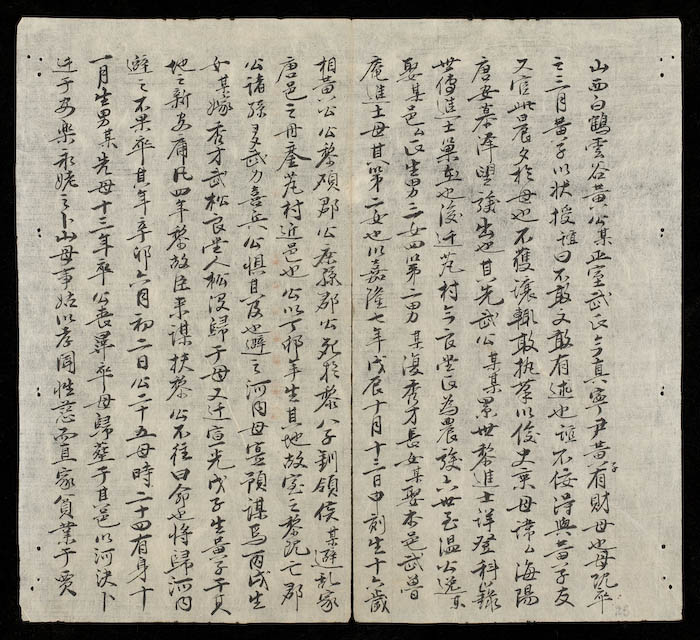 山西白鶴雲谷黃公某正室武氏今真寧尹黃子有財母也母既卒
之三月黃子以狀授誼曰不敢文敢有述也誼不佞得與黃子友
又官此晨夕於母也不獲讓輒敢執筆以俟史乘母諱么海陽
唐安慕澤望族出也其先武公某某累世黎進士詳登科錄
世傳進士巢在也後迁芤村今良堂區為農族六世至溫公逸某
娶某邑么區生男三女四以第二男某復秀才長女某娶本邑武曾
庵進士母其第二女也以嘉隆七年戊辰十月十三日申刻生十六歲
相黃公公黎碩郡公孫郡公死於黎八子釗領侯某避乱家
唐邑之丹鑾芤村近邑也公以丁卯年生其地故室之黎既亡郡
公諸孫多武力喜兵公懼且及也避之河內母寔預謀焉丙戌生
女某嫁秀才武松良堂人松沒歸于母又迁宣光戊子生黃子于其
地之新安庸凡四年黎故臣來謀扶黎公不往曰命也將歸河內
避之不果卒其年辛卯六月初二日公二十五母時二十四有身十
一月生男某先母十三年卒公喪畢卒母歸葬于其邑以河決卜
迁于安樂永姥之卜山母事姑以孝聞性慈而直家貧業于賈